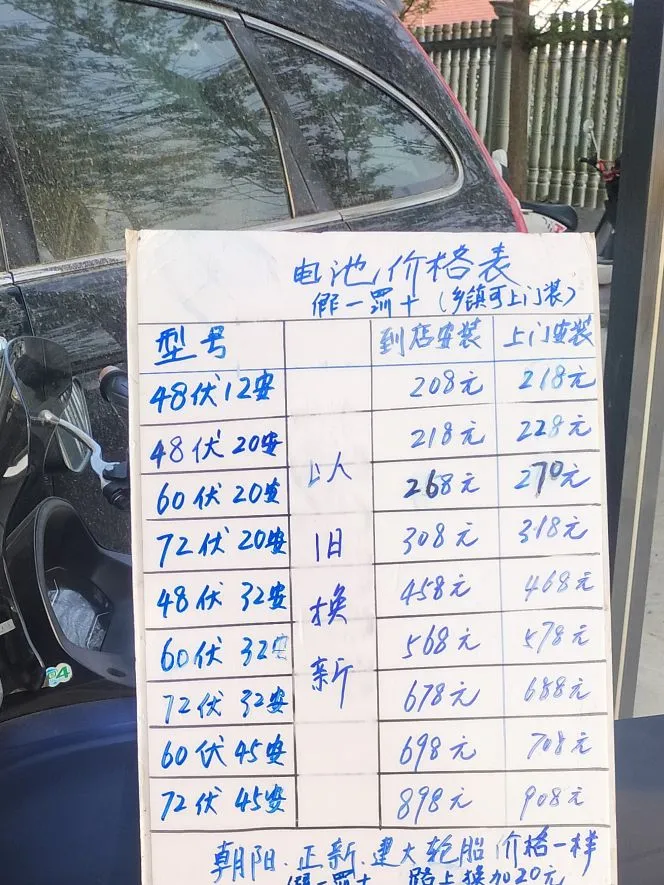 电池价格表
假一罚十(乡镇可上门装)
型号 到店安装 上门安装
48伏12安 208元 218元
48伏20安 218元 228元
60伏20安 268元 270元
72伏20安 308元 318元
48伏32安 458元 468元
60伏32安 568元 578元
72伏32安 678元 688元
60伏45安 698元 708元
72伏45安 898元 908元
以旧换新
朝阳.正新.建大轮胎价格一样
假一罚十 路上换加20元
04